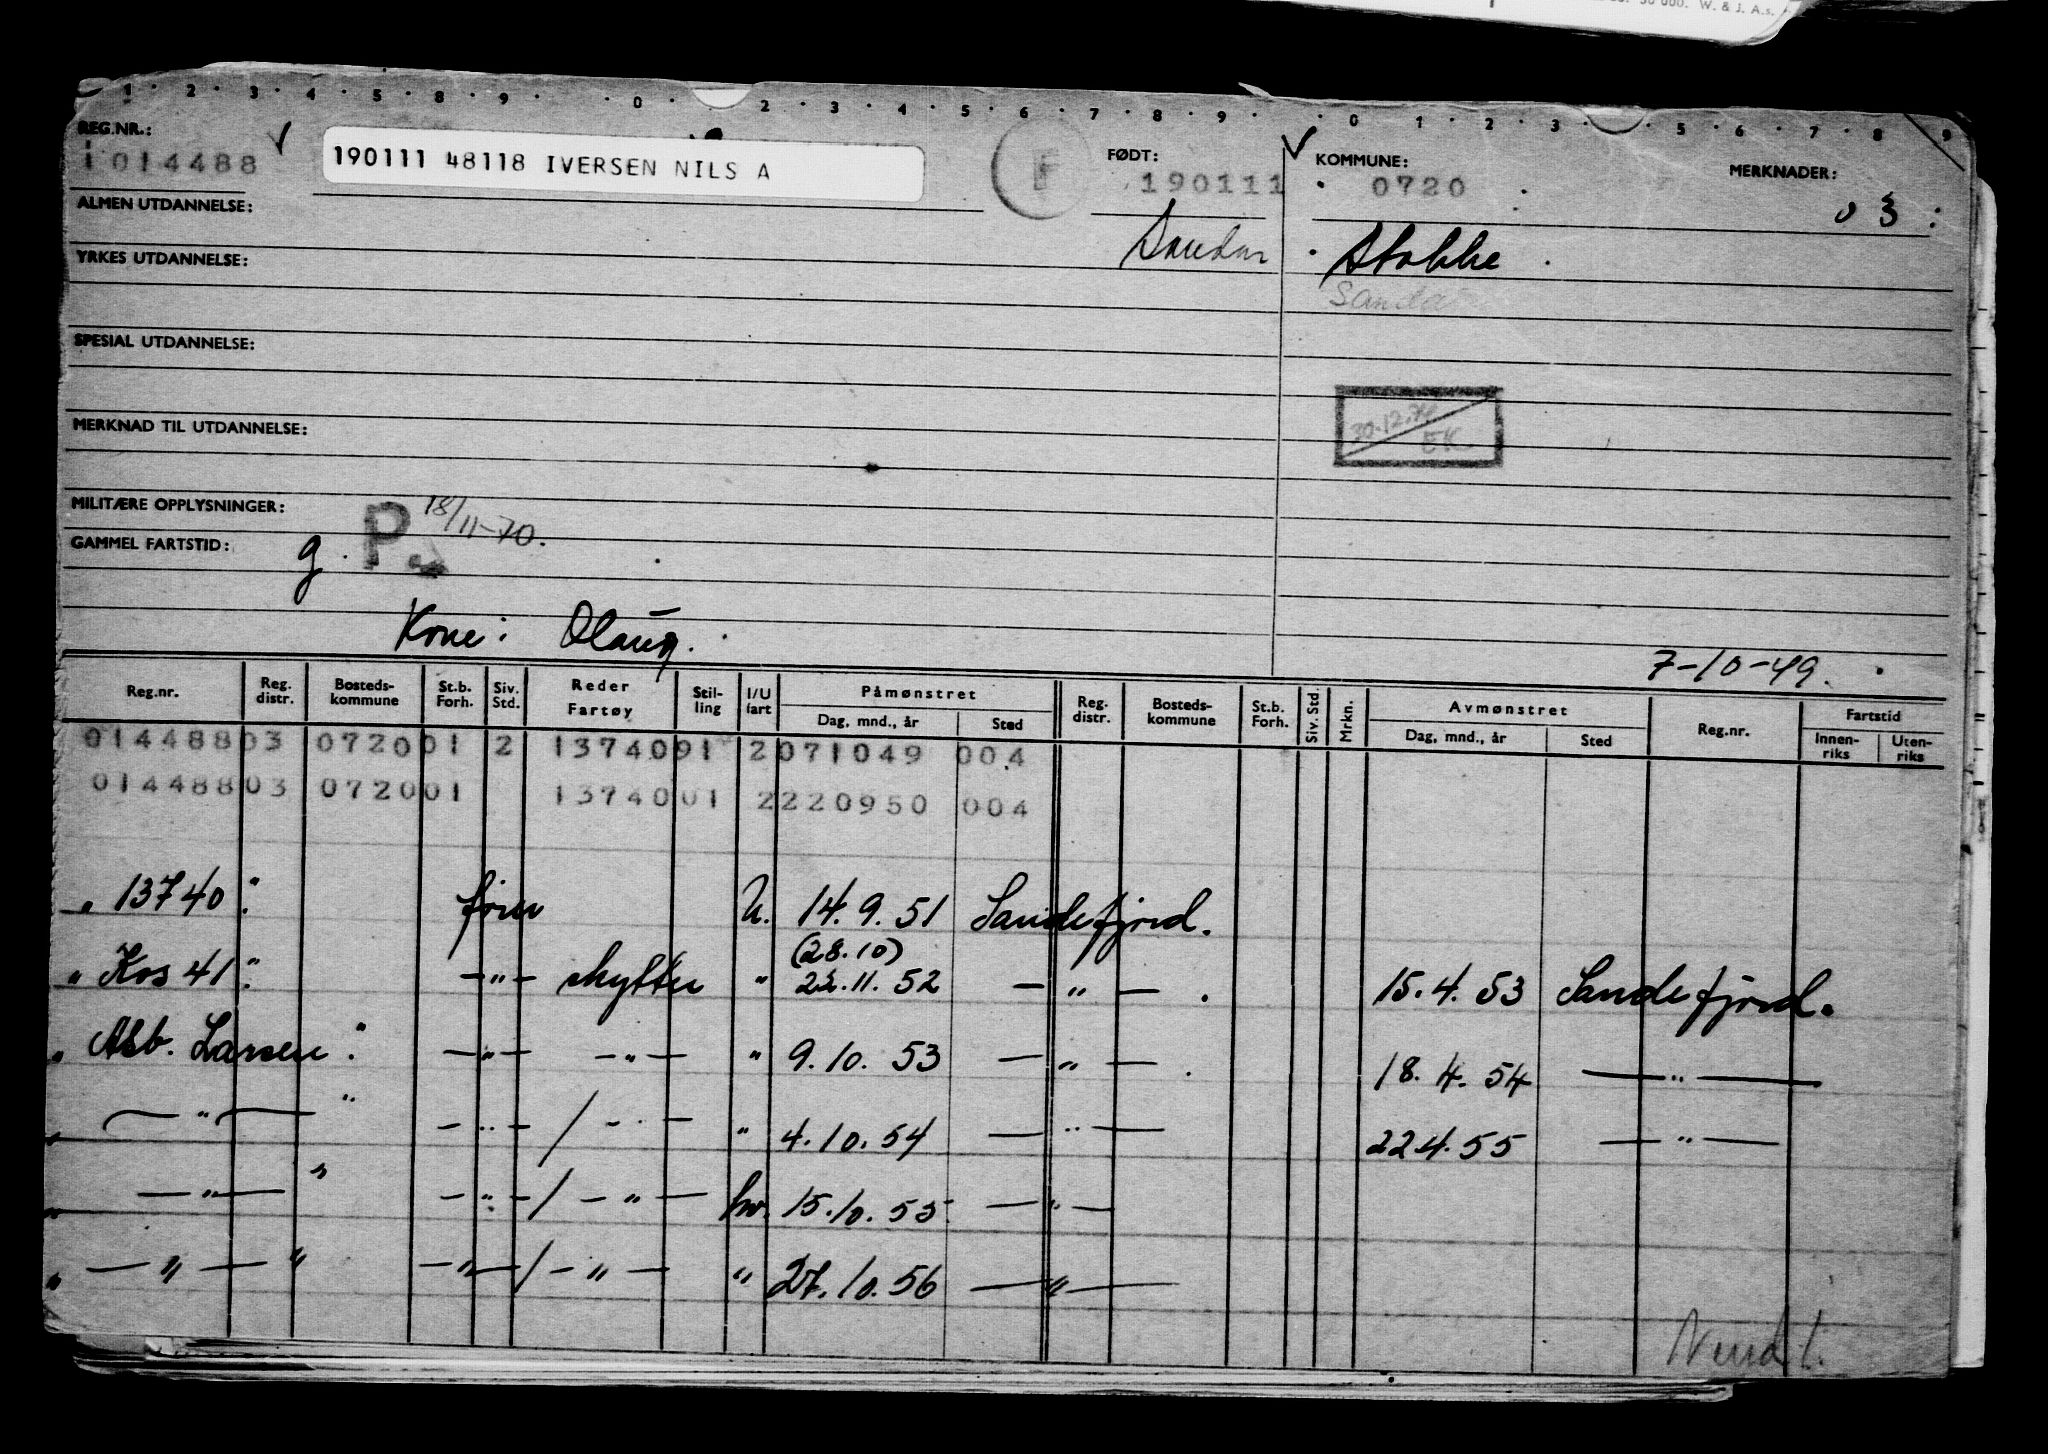 30 000. W. & J. A.s.
1 · 2 · 3 · 4 · 5 · 8 · 9 · · 0 · 2 · 3 · 4 · 5 · 6 · 7 · 8 · 9 · · 0 · 1 · 2 · 3 · 5 · 6 · 7 · 8 · 9
REG.NR.: FØDT: KOMMUNE: MERKNADER:
1014488 190111 48118 IVERSEN NILS A F 190111 0720 03
ALMEN UTDANNELSE:
Sandar Stokke
YRKES UTDANNELSE:
Sandar
SPESIAL UTDANNELSE:
30.12.70
EK
MERKNAD TIL UTDANNELSE:
MILITÆRE OPPLYSNINGER: P. 18/11-70.
GAMMEL FARTSTID: g.
Kone: Olaug.
7-10-49.
Reg.nr. Reg. distr. Bosteds-kommune St.b. Forh. Siv. Std. Reder Fartøy Stil-ling I/U fart Påmønstret Dag, mnd., år Sted Reg. distr. Bosteds-kommune St.b. Forh. Siv. Std. Mrkn. Avmønstret Dag, mnd., år Sted Reg.nr. Fartstid Innen-riks Uten-riks
014488 03 0720 01 2 13740 91 2 071049 004
014488 03 0720 01 13740 01 2 220950 004
" 13740 " U. 14.9.51 Sandefjord.
(28.10)
" Kos 41 " — " — skytter " 22.11.52 — " — . 15.4.53 Sandefjord.
" Asb. Larsen " — " — — " — " 9.10.53 — " — . 18.4.54 — " —
" — " — " — " — / — " — " 4.10.54 — " — 22.4.55 — " —
" — " — " — " — / — " — hv. 15.10.55 — " —
" — " — " — " — / — " — " 27.10.56 — " —